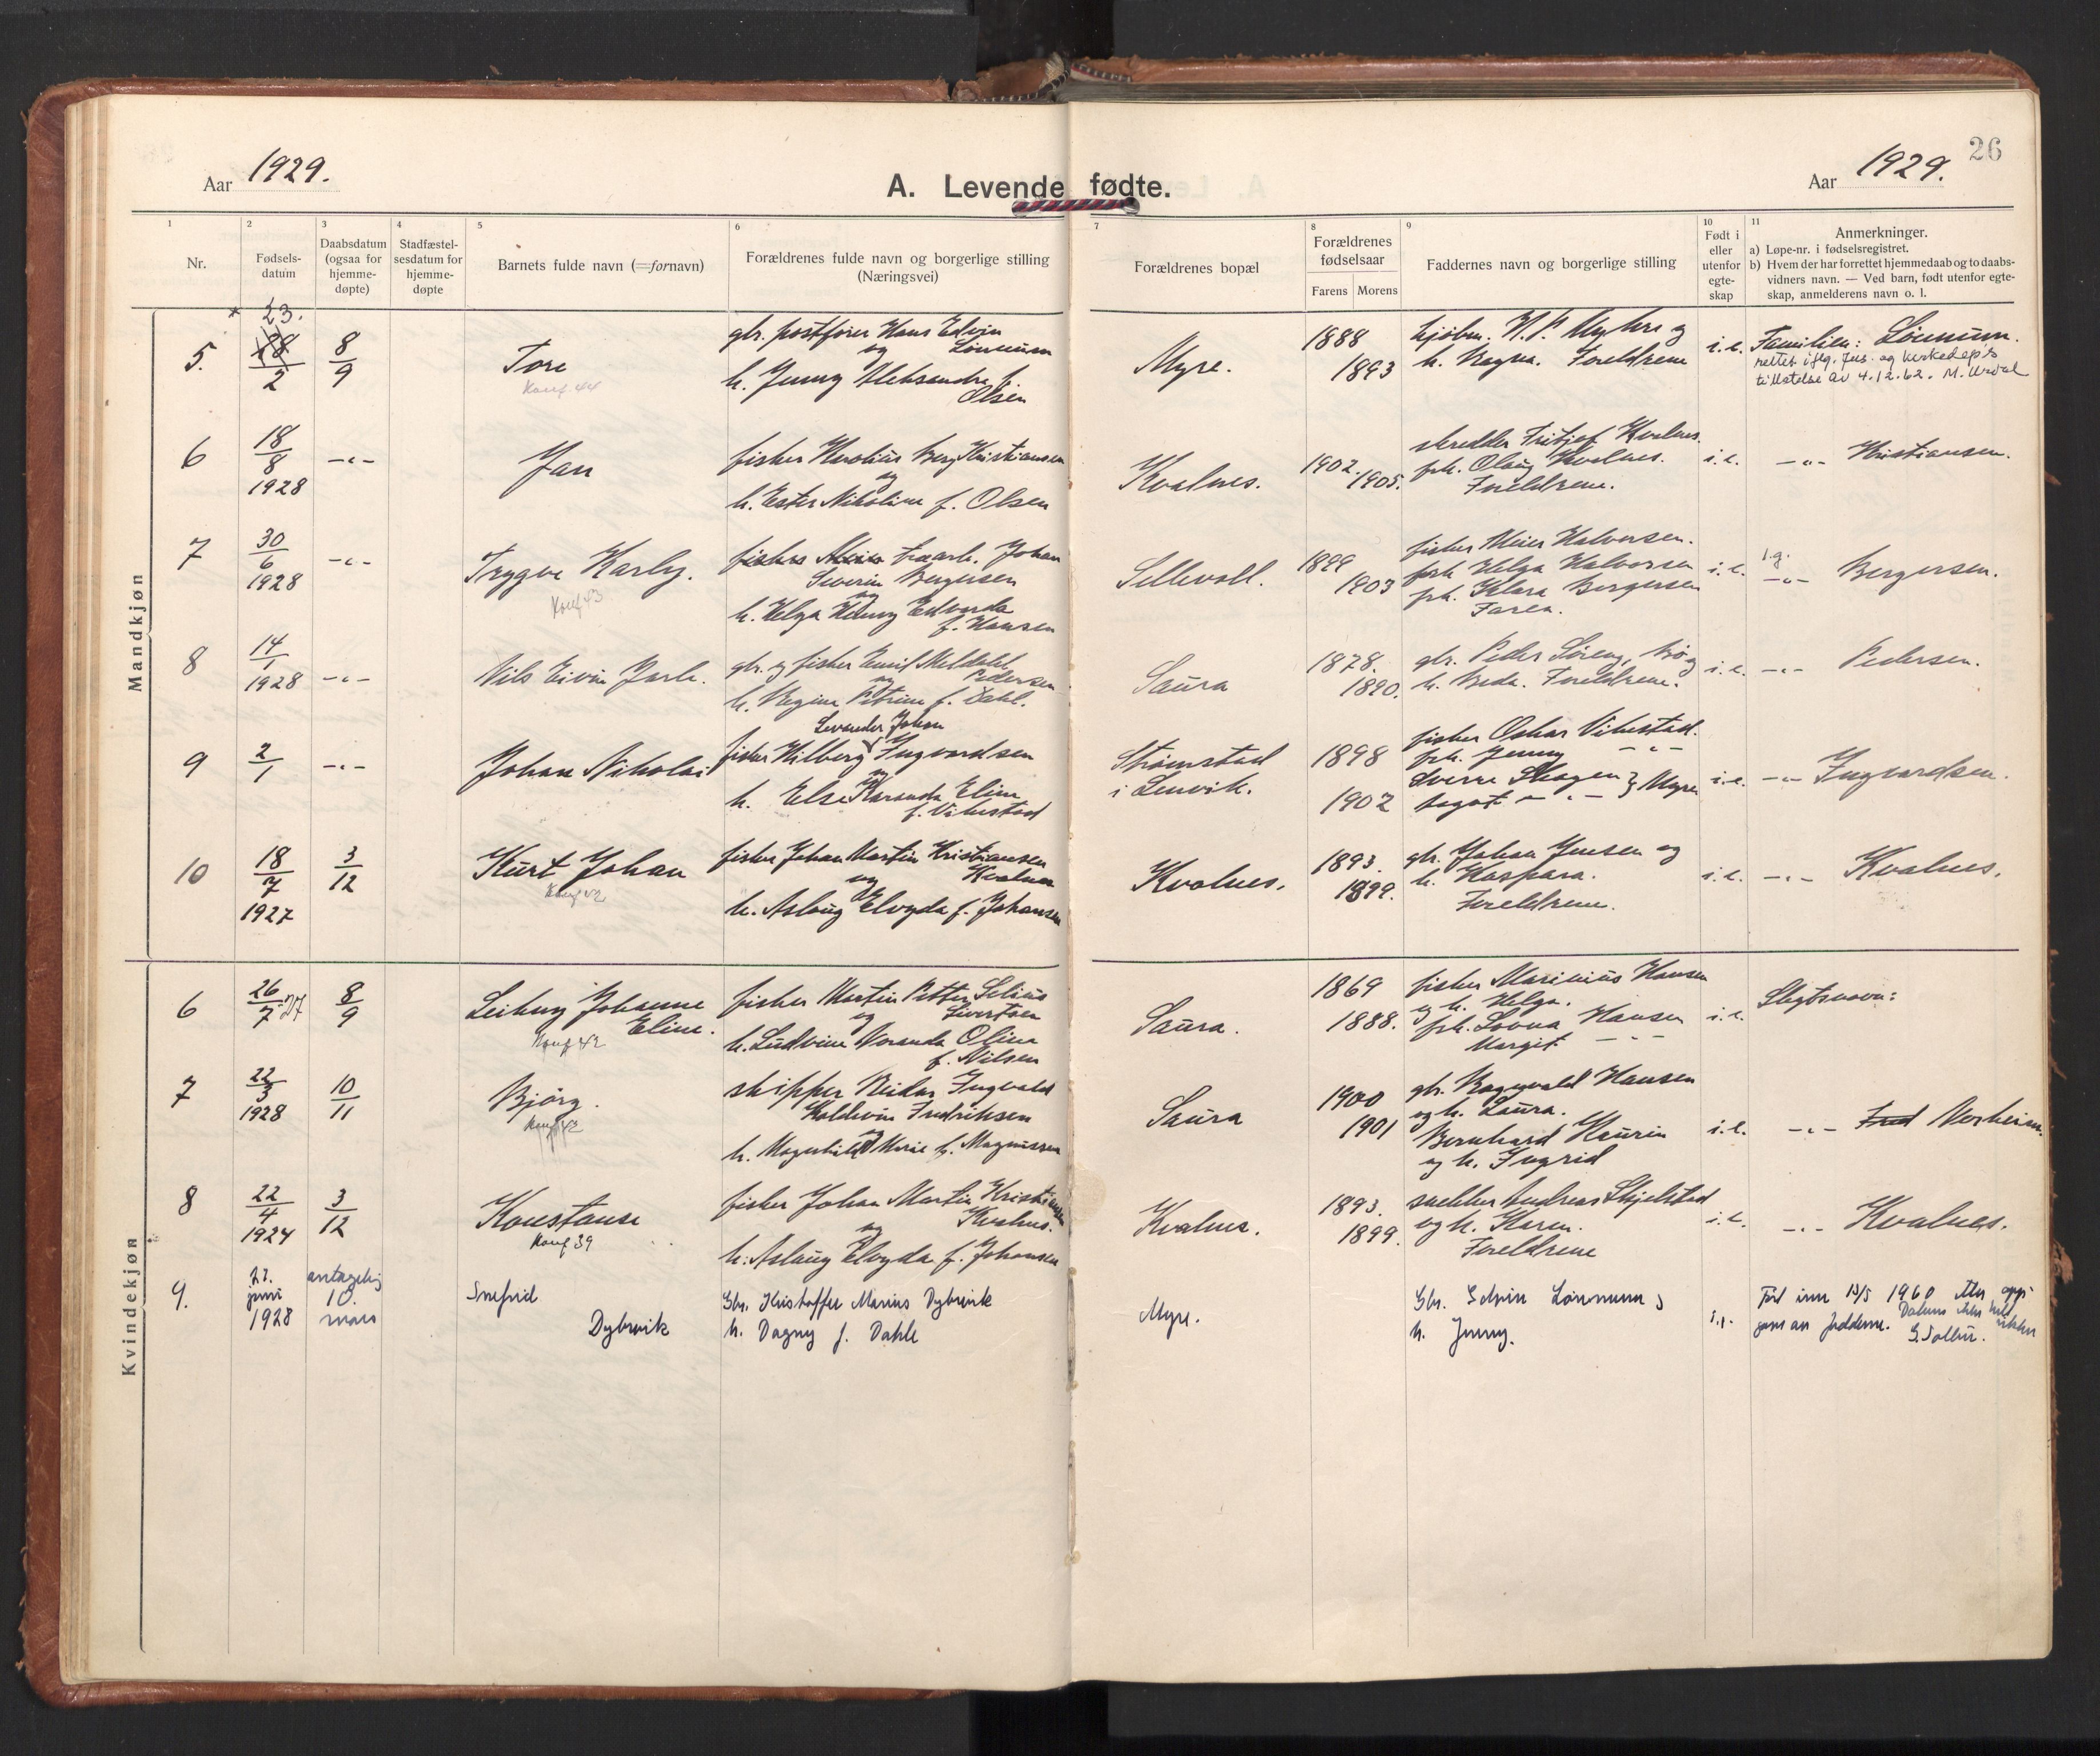 26
Aar 1929.
A. Levende fødte.
Aar 1929.
1 2 3 4 5 6 7 8 9 10 11
Nr.
Fødsels-
datum
Daabsdatum
(ogsaa for
hjemme-
døpte)
Stadfæstel-
sesdatum for
hjemme-
døpte
Barnets fulde navn (=fornavn)
Forældrenes fulde navn og borgerlige stilling
(Næringsvei)
Forældrenes bopæl
Forældrenes
fødselsaar
Farens Morens
Faddernes navn og borgerlige stilling
Født i
eller
utenfor
egte-
skap
Anmerkninger.
a) Løpe-nr. i fødselsregistret.
b) Hvem der har forrettet hjemmedaab og to daabs-
vidners navn. — Ved barn, født utenfor egte-
skap, anmelderens navn o. l.
Mandkjøn
5.
23.
28
2
8
9
Tore
Konf 44
gbr. postfører Hans Edvin
og Lønnum
h. Jenny Aleksandra f.
Olsen
Myre.
1888
1893
kjøbm.
h. Ragna. Foreldrene
i.e.
Familien: Lønnum.
rettet iflg. Jus. og kirkedep's
tillatelse av 4.12.62. M.
6
18
8
1928
-"-
Jan
fisker Karolius Berg Kristiansen
og
h. Ester Nikoline f. Olsen
Kvalnes.
1902.
1905.
skredder Fritjof Kvalnes.
frk. Olaug Kvalnes.
Foreldrene.
i.e.
-"- Kristiansen.
7
30
6
1928
-"-
Trygve Karly.
Konf 43
fisker træarb. Johan
Severin Bergersen
og
h. Helga Henny Edvarda
f. Hansen
Sellevoll.
1899
1903
fisker Meier Halvorsen.
frk Helga Halvorsen
frk. Klara Bergersen
Faren.
i.e.
1.g.
-"- Bergersen.
8
14
1
1928
-"-
Nils Eivin Jarle.
gbr. og fisker Emil Meldahl
og Pedersen
h. Regine Petrine f. Dahl.
Saura
1878.
1890.
gbr. Peder Søreng, Bø og
h. Beda. Foreldrene.
i.e.
-"- Pedersen.
9
2
1
-"-
Johan Nikolai
Levander Johan
fisker Hilberg Ingvardsen
og
h. Else Karanda Eline
f. Vikestad
Strømstad
i Lenvik.
1898
1902
fisker Oskar Vikestad.
frk. Jenny -"-
Sverre Skagen } Myre
Aagot -"-
i.e.
-"- Ingvardsen.
10
18
7
1927
3
12
Kurt Johan
Konf 42
fisker Johan Martin Kristiansen
og Kvalnes
h. Aslaug Elvyda f. Johansen
Kvalnes.
1893.
1899.
gbr. Johan Jensen og
h. Kaspara.
Foreldrene.
i.e.
-"- Kvalnes.
Kvindekjøn
6
26
7 27
8
9
Leikny Johanne
Eline.
Konf 42
fisker Martin Petter Selius
og Sivertsen
h. Ludvine Voranda Oline
f. Nilsen
Saura.
1869
1888.
fisker Marinius Hansen
og h. Helga.
frk. Lovna Hansen
Margit -"-
i.e.
Slegtsnavn:
7
22
3
1928
10
11
Bjørg.
Konf 42
skipper Reidar Ingvald
Baldevin Fredriksen
og
h. Magnhild Marie f. Magnussen
Saura
1900
1901
gbr. Ragnvald Hansen
og h. Laura.
Bernhard Haurin
og h. Ingrid
i.e.
-"- Fred Verheim.
8
22
4
1924
3
12
Konstanse
Konf 39
fisker Johan Martin Kristiansen
og Kvalnes.
h. Aslaug Elvyda f. Johansen
Kvalnes.
1893.
1899.
snekker Andreas Skjelstad
og h. Karen.
Foreldrene
i.e.
-"- Kvalnes.
9.
juni
1928
antagelig
10.
mars
Snefrid
Dybwik
Gbr. Kristoffer Marius Dybwik
h. Dagny f. Dahle
Myre.
Gbr. Edvin Lønnum og
h. Jenny.
Ført inn 13/5 1960 etter opp-
gave av fadderne. Datum ikke helt sikker